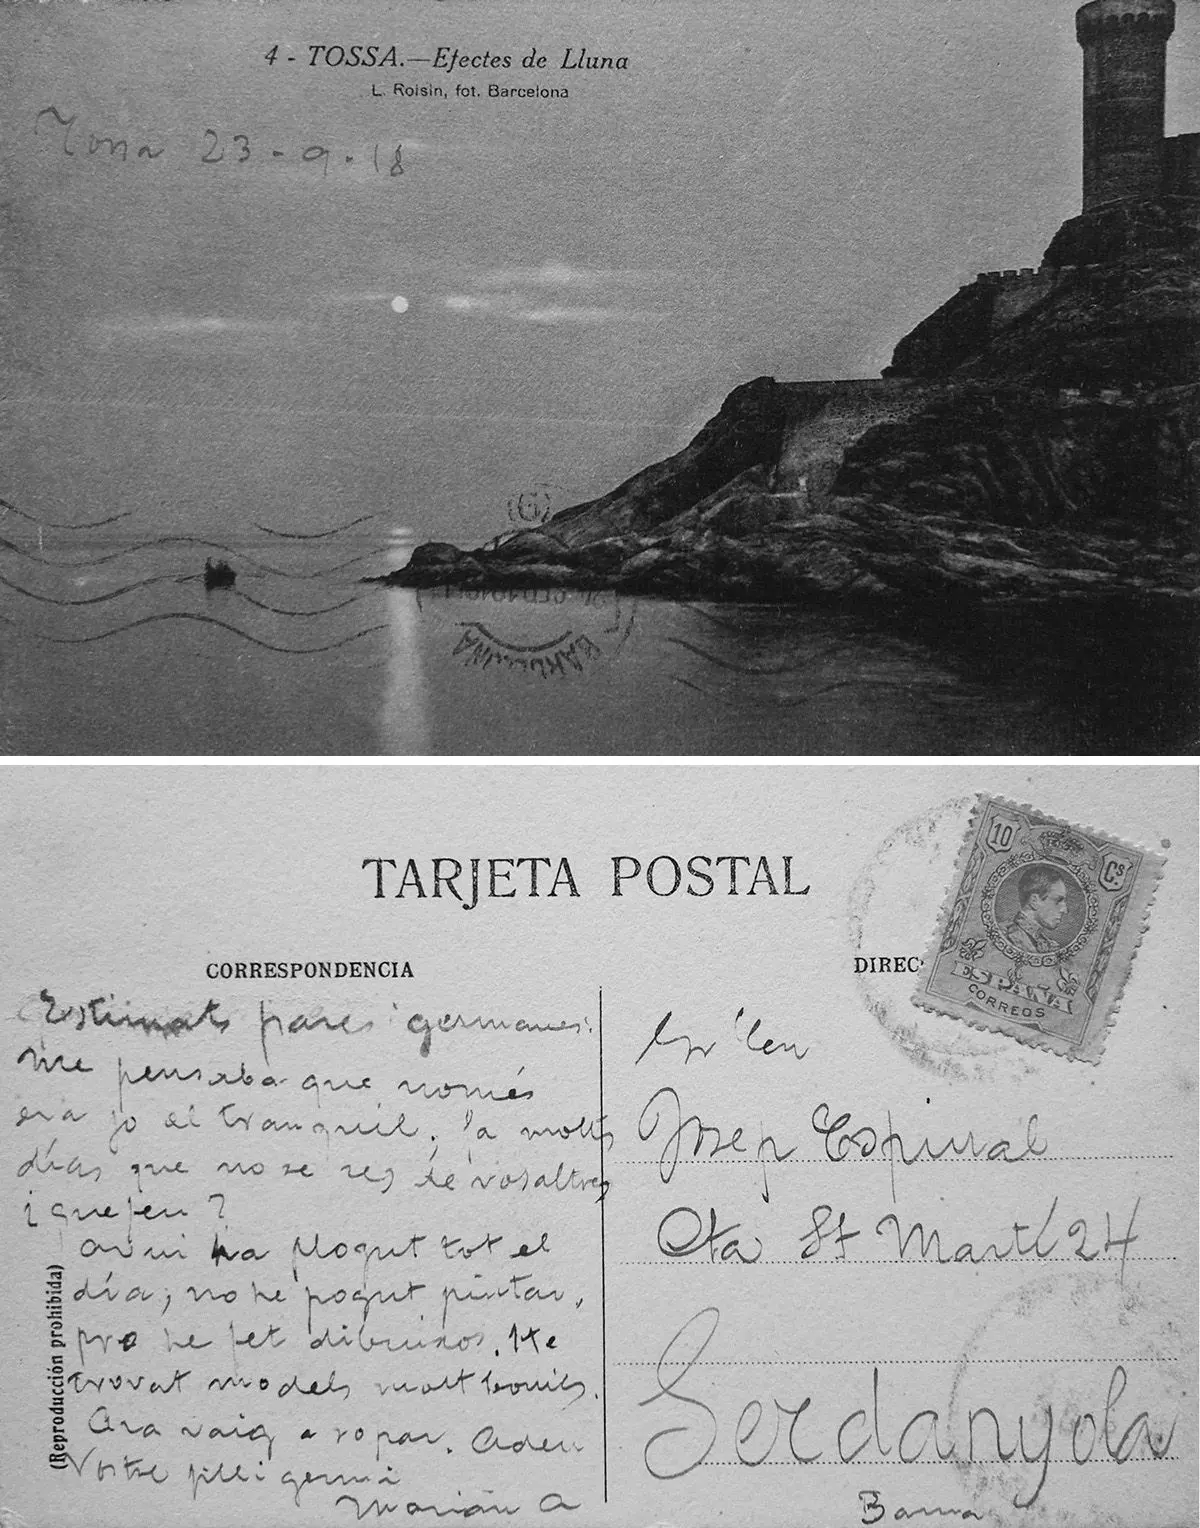 4 - TOSSA.—Efectes de Lluna
L. Roisin, fot. Barcelona
Tossa 23-9-18
BARCELONA
TARJETA POSTAL
CORRESPONDENCIA
DIREC
10 Cs.
ESPAÑA
CORREOS
Estimats pares i germanes:
me pensaba que només
era jo el tranquil, ja molts
días que no se res de vosaltres
i que feu?
Avui ha plogut tot el
día, no he pogut pintar,
pro he fet dibuixos. He
trovat models molt bonics.
Ara vaig a sopar. Adeu
Vostre fill i germá
Marián A
(Reproducción prohibida)
Josep Espinal
Cta St Martí 24
Serdanyola
Barna